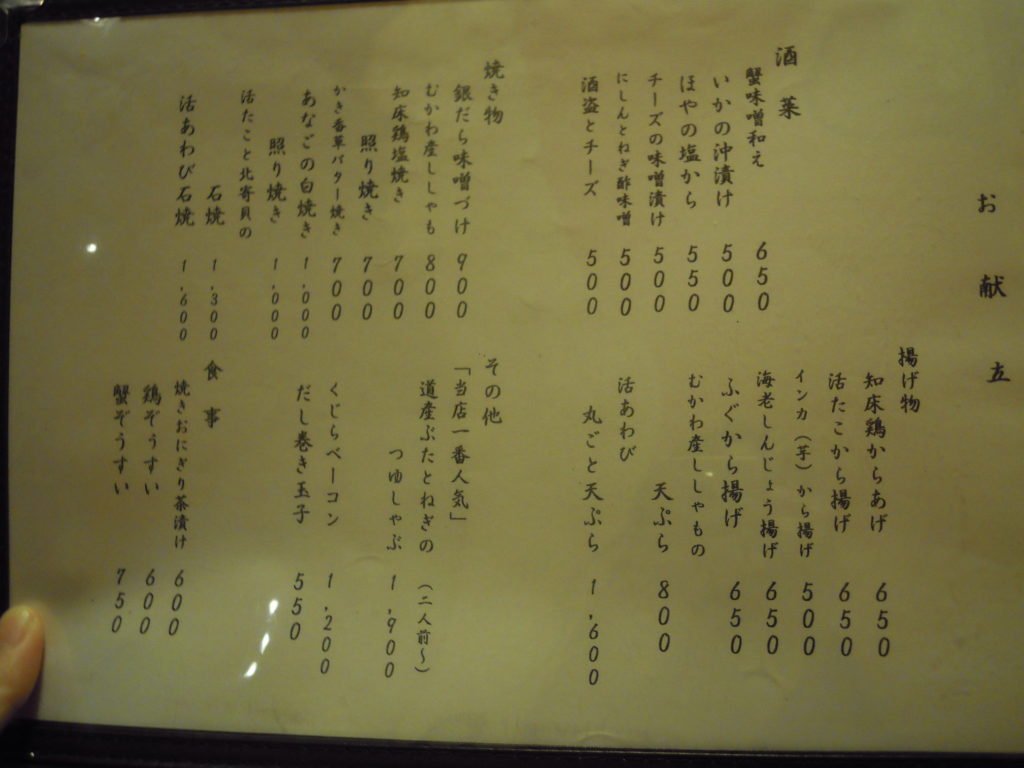 お献立
酒菜
蟹味噌和え 650
いかの沖漬け 500
ほやの塩から 550
チーズの味噌漬け 500
にしんとねぎ酢味噌 500
酒盗とチーズ 500
揚げ物
知床鶏からあげ 650
活たこから揚げ 650
インカ(芋)から揚げ 500
海老しんじょう揚げ 650
ふぐから揚げ 650
むかわ産ししゃもの
天ぷら 800
活あわび
丸ごと天ぷら 1,600
焼き物
銀だら味噌づけ 900
むかわ産ししゃも 800
知床鶏塩焼き 700
照り焼き 700
かき香草バター焼き 700
あなごの白焼き 1,000
照り焼き 1,000
活たこと北寄貝の
石焼 1,300
活あわび石焼 1,600
その他
「当店一番人気」
道産ぶたとねぎの (二人前～)
つゆしゃぶ 1,900
くじらベーコン 1,200
だし巻き玉子 550
食事
焼きおにぎり茶漬け 600
鶏ぞうすい 600
蟹ぞうすい 750